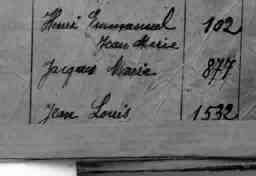 Henri Emmanuel 102
Jean Marie
Jacques Marie 877
Jean Louis 1532